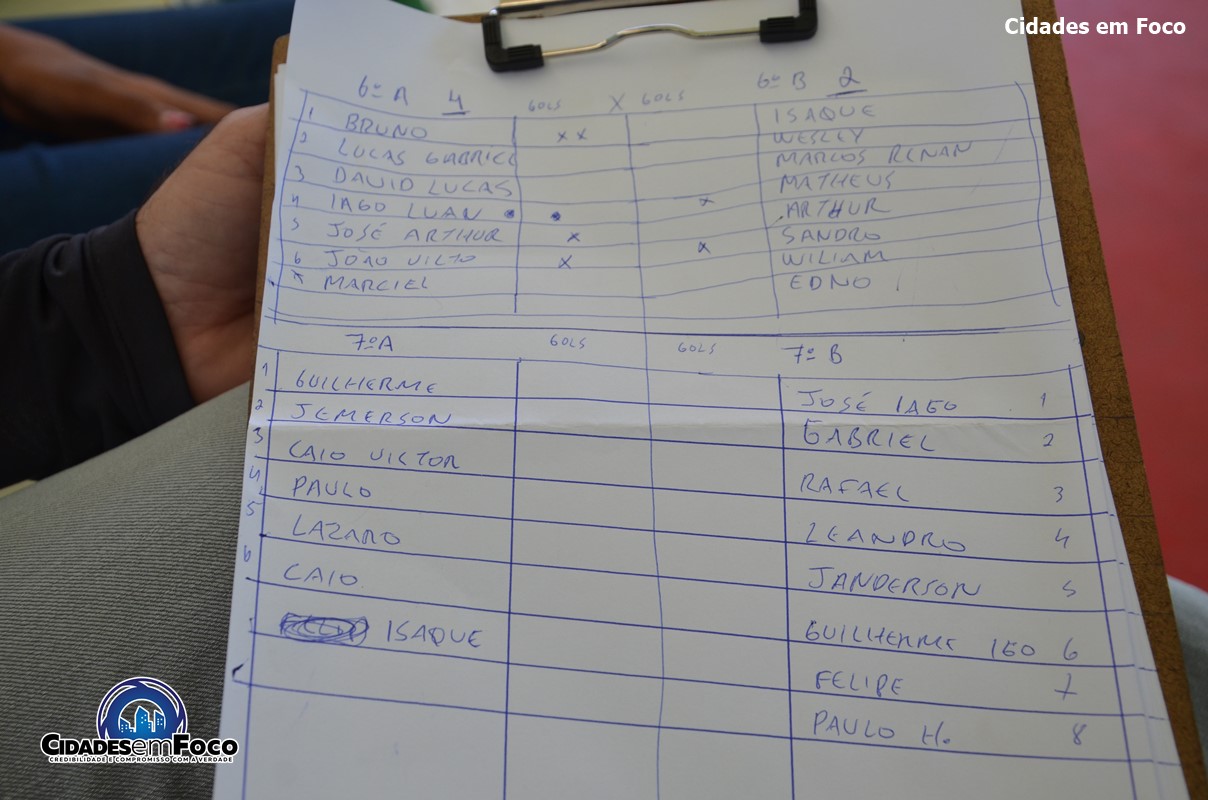 Cidades em Foco
6º A 4 GOLS X GOLS 6º B 2
1 BRUNO x x ISAQUE
2 LUCAS GABRIEL WESLEY
3 DAVID LUCAS MARCOS RENAN
4 IAGO LUAN MATHEUS
5 JOSÉ ARTHUR x x ARTHUR
6 JOÃO VICTO x x SANDRO
MARCIEL WILIAM
EDNO
7º A GOLS GOLS 7º B
1 GUILHERME JOSÉ IAGO 1
2 JEMERSON GABRIEL 2
3 CAIO VICTOR RAFAEL 3
4 PAULO LEANDRO 4
5 LAZARO JANDERSON 5
6 CAIO GUILHERME IGO 6
ISAQUE FELIPE 7
PAULO H. 8
CIDADES em FOCO
CREDIBILIDADE E COMPROMISSO COM A VERDADE